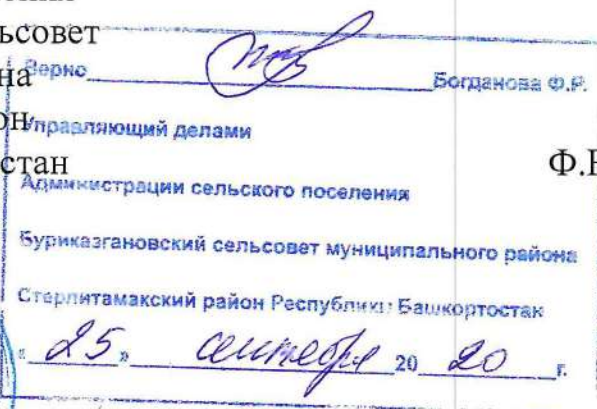 льсовет
на
он
стан
Ф.
Верно Богданова Ф.Р.
Управляющий делами
Администрации сельского поселения
Буриказгановский сельсовет муниципального района
Стерлитамакский район Республики Башкортостан
« 25 » сентября 20 20 г.